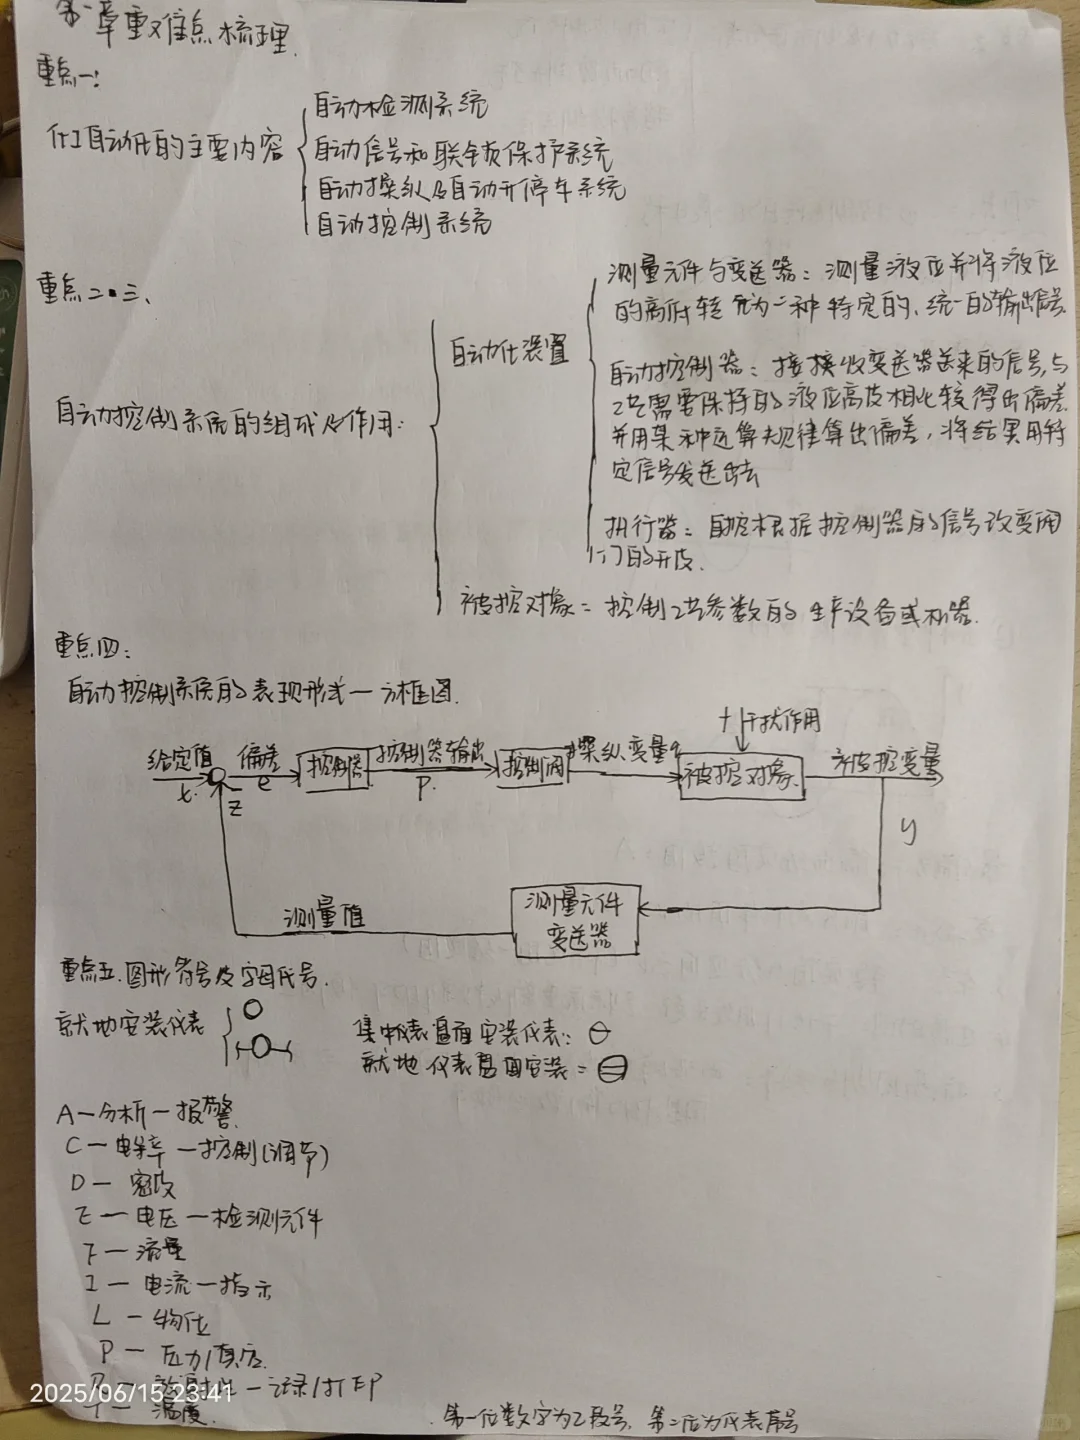 第一章重难点梳理.
重点一:
化工自动化的主要内容
自动检测系统
自动信号和联锁保护系统
自动操纵及自动开停车系统
自动控制系统
重点二·三、
自动控制系统的组成及作用:
自动化装置
测量元件与变送器: 测量液位并将液位
的高低转化为一种特定的、统一的输出信号
自动控制器: 接收变送器送来的信号,与
工艺需要保持的液位高度相比较得出偏差
并用某种运算规律算出偏差,将结果用特
定信号发送出去
执行器: 自控根据控制器的信号改变阀
门的开度.
被控对象= 控制工艺参数的生产设备或机器.
重点四:
自动控制系统的表现形式一方框图.
干扰作用
给定值 偏差 控制器 控制器输出 控制阀 操纵变量q 被控对象 被控变量
e P.
z
y
测量值 测量元件
变送器
重点五.图形符号及字母代号.
就地安装仪表
集中仪表盘面安装仪表:
就地仪表盘面安装=
A—分析—报警
C—电导率—控制(调节)
D—密度
E—电压—检测元件
F—流量
I—电流—指示
L—物位
P—压力/真空.
—记录/打印
T—温度.
2025/06/15 23:41
.第一位数字为工段号,第二位为仪表序号